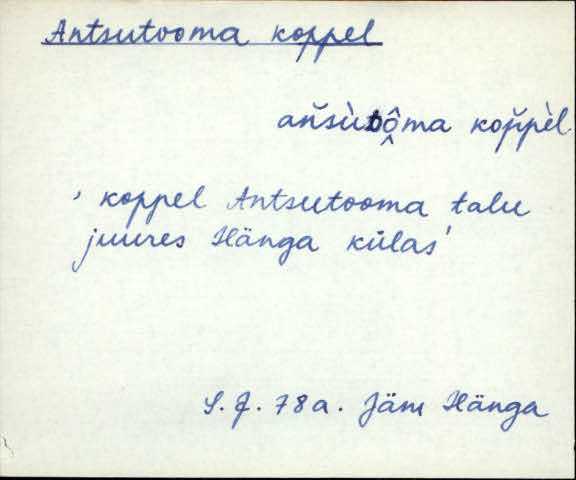 Antsutooma koppel
ан̆sùtô̭ma kop̆pèl
' koppel Antsutooma talu
juures Hänga külas'
S. J. 78a. Jäm Hänga